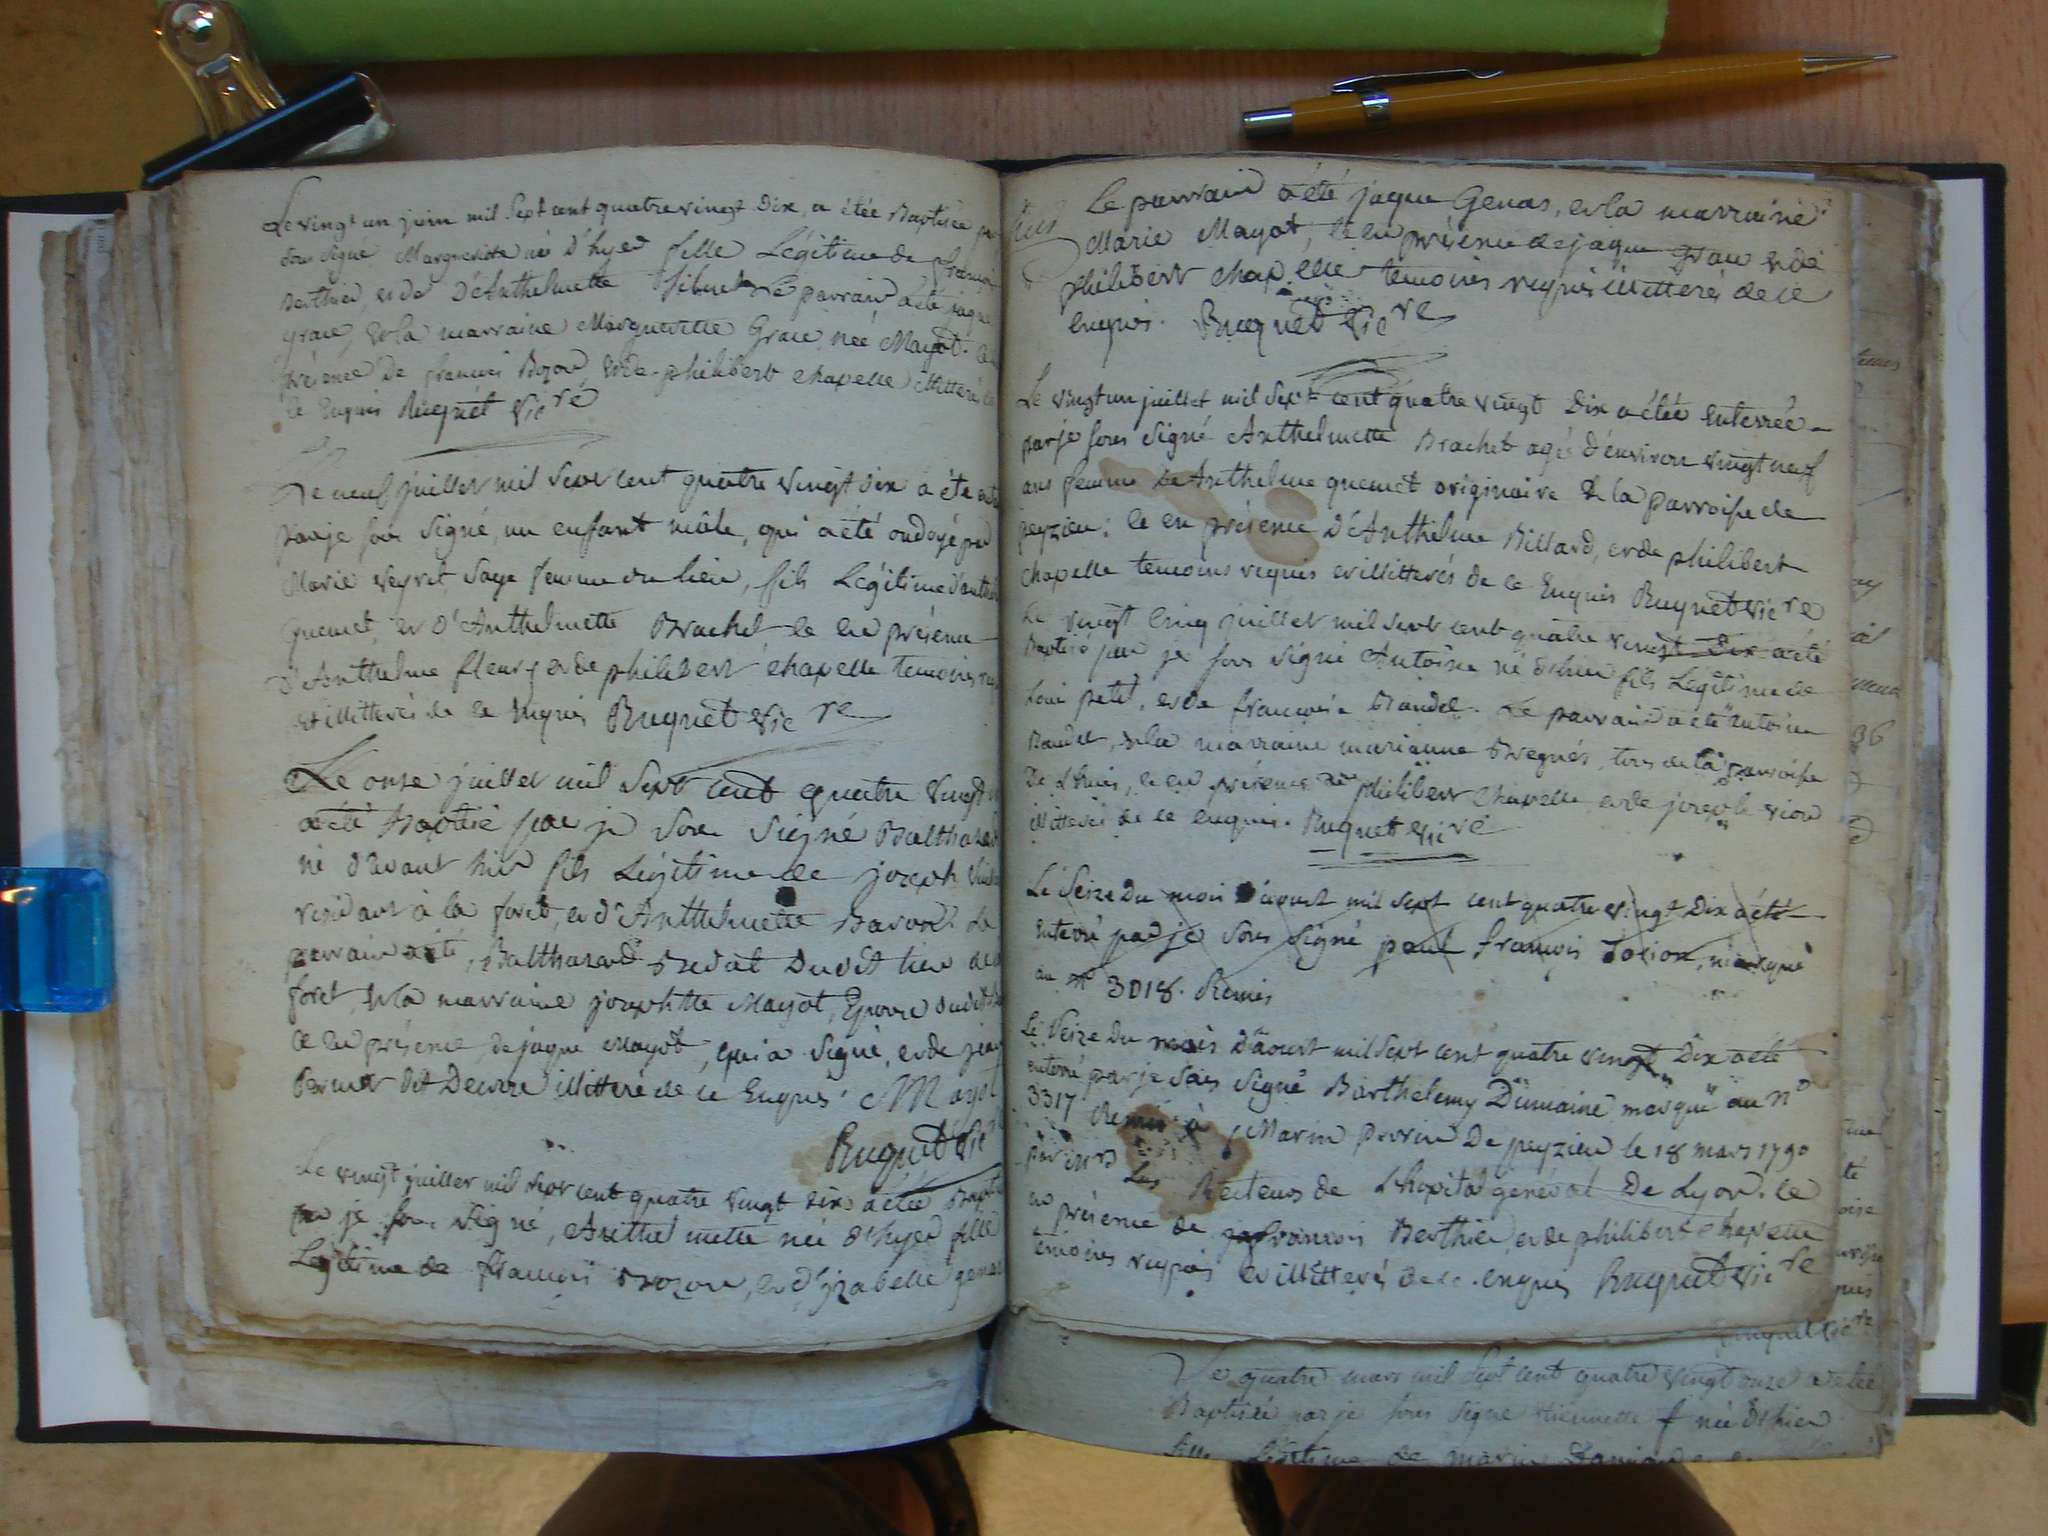 Le vingt un juin mil Sept cent quatre vingt Dix, a étée Baptisée par
sous signé Marguerite née D'hyer fille Légitime de françois
Berthier, et de D'Anthelmette Le parrain a été jaque
Grane, et la marraine Marguerette Grane née Mayot. ce en
présence de francois Bozon, et de philibert chapelle illitterés
de ce Enquis Ruquet vic re
Le neuf juillet mil Sept cent quatre vingt dix a été
par je sous signé, un enfant mâle, qui a été ondoyé par
Marie veyret Sage femme du lieu, fils Légitime d'anthelme
quemet, et d'Anthelmette Brachet ce en présence
d'Anthelme fleury et de philibert chapelle temoins
et illitterés de ce Enquis Ruquet vic re
Le onze juillet mil Sept cent quatre vingt
a été Baptisé par je sous Signé Balthazard
né d'avant hier fils Légitime de joseph
residant à la foret, et d'Anthelmette Le
parrain a été, Balthazard Bredat Dudit lieu de
foret, et la marraine josephtte Mayot, Epouse dudit
ce en présence de jaque Mayot, qui a signé, et de
dit illitteré de ce Enquis. Mayot
Ruquet vic
Le vingt juillet mil Sept cent quatre vingt dix a étée
par je sous signé, Anthelmette née d'hyer fille
Légitime de françois Bozon, et d'yzabelle genas
Le parrain a été jaque Genas, et la marraine
Marie Mayot, ce en présence de jaque Grane et de
philibert chapelle temoins requis illitterés de ce
Enquis. Ruquet vic re
Le vingt un juillet mil Sept cent quatre vingt Dix a étée Enterrée
par je sous signé Anthelmette Brachet agée d'environ vingt neuf
ans femme de Anthelme quemet originaire de la parroisse de
peyzieu; ce en présence D'Anthelme Billard, et de philibert
chapelle temoins requis et illitterés de ce Enquis Ruquet vic re
Le vingt cinq juillet mil Sept cent quatre vingt Dix a été
Baptisé par je sous signé Antoine né d'hier fils Légitime de
Loui petit, et de françoise Baudet. Le parrain a été Antoine
Baudet, et la marraine marianne Bregnés, tous de la parroisse
De Lhuis, ce en présence de philibert chapelle et de joseph vion
illitterés de ce enquis. Ruquet vic re
Le Seize Du mois d'aoust mil sept cent quatre vingt Dix a été
enterré par je sous signé paul françois Tolion, marqué
au n° 3018. Remis
Le Seize Du mois D'aoust mil Sept cent quatre vingt Dix a été
enterré par je sous signé Barthelemy Dumaine marqué au n°
3317 Remis à Marin perrin De peyzieu le 18 mars 1790
par mrs Les Recteurs de L'hopital genéral De Lyon. ce
en présence de francois Berthier, et de philibert chapelle
temoins requis et illitterés de ce enquis Ruquet vic re
Le quatre mars mil Sept cent quatre vingt onze a étée
Baptisée par je sous signé Etiennette née d'hier
fille Légitime de marin